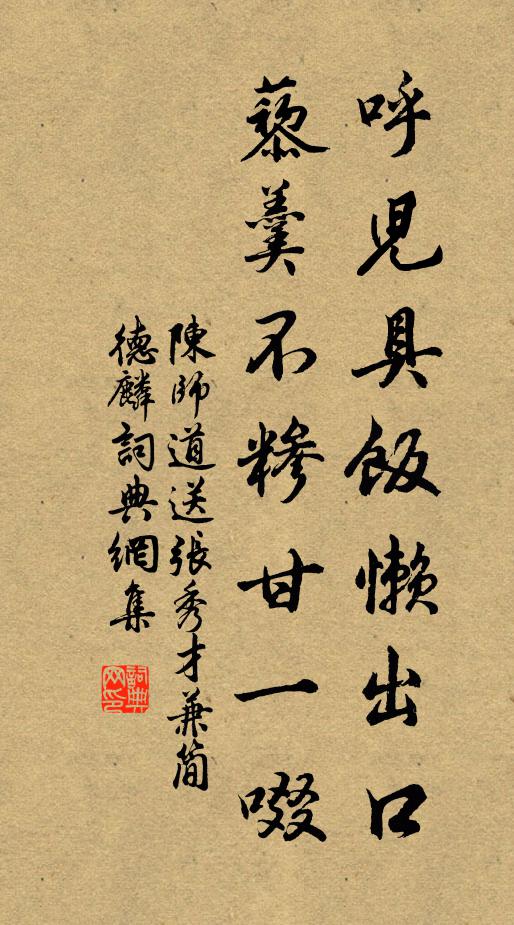 呼兒具飯懶出口
藜羹不糝甘一啜
陳師道送張秀才兼簡
德麟詞典網集
詞典网印